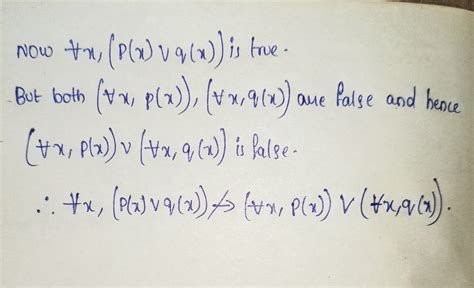 Now ∀x, (P(x) ∨ q(x)) is true.
But both (∀x, p(x)), (∀x, q(x)) are false and hence
(∀x, p(x)) ∨ (∀x, q(x)) is false.
∴ ∀x, (P(x) ∨ q(x)) ↛ (∀x, p(x)) ∨ (∀x, q(x)).